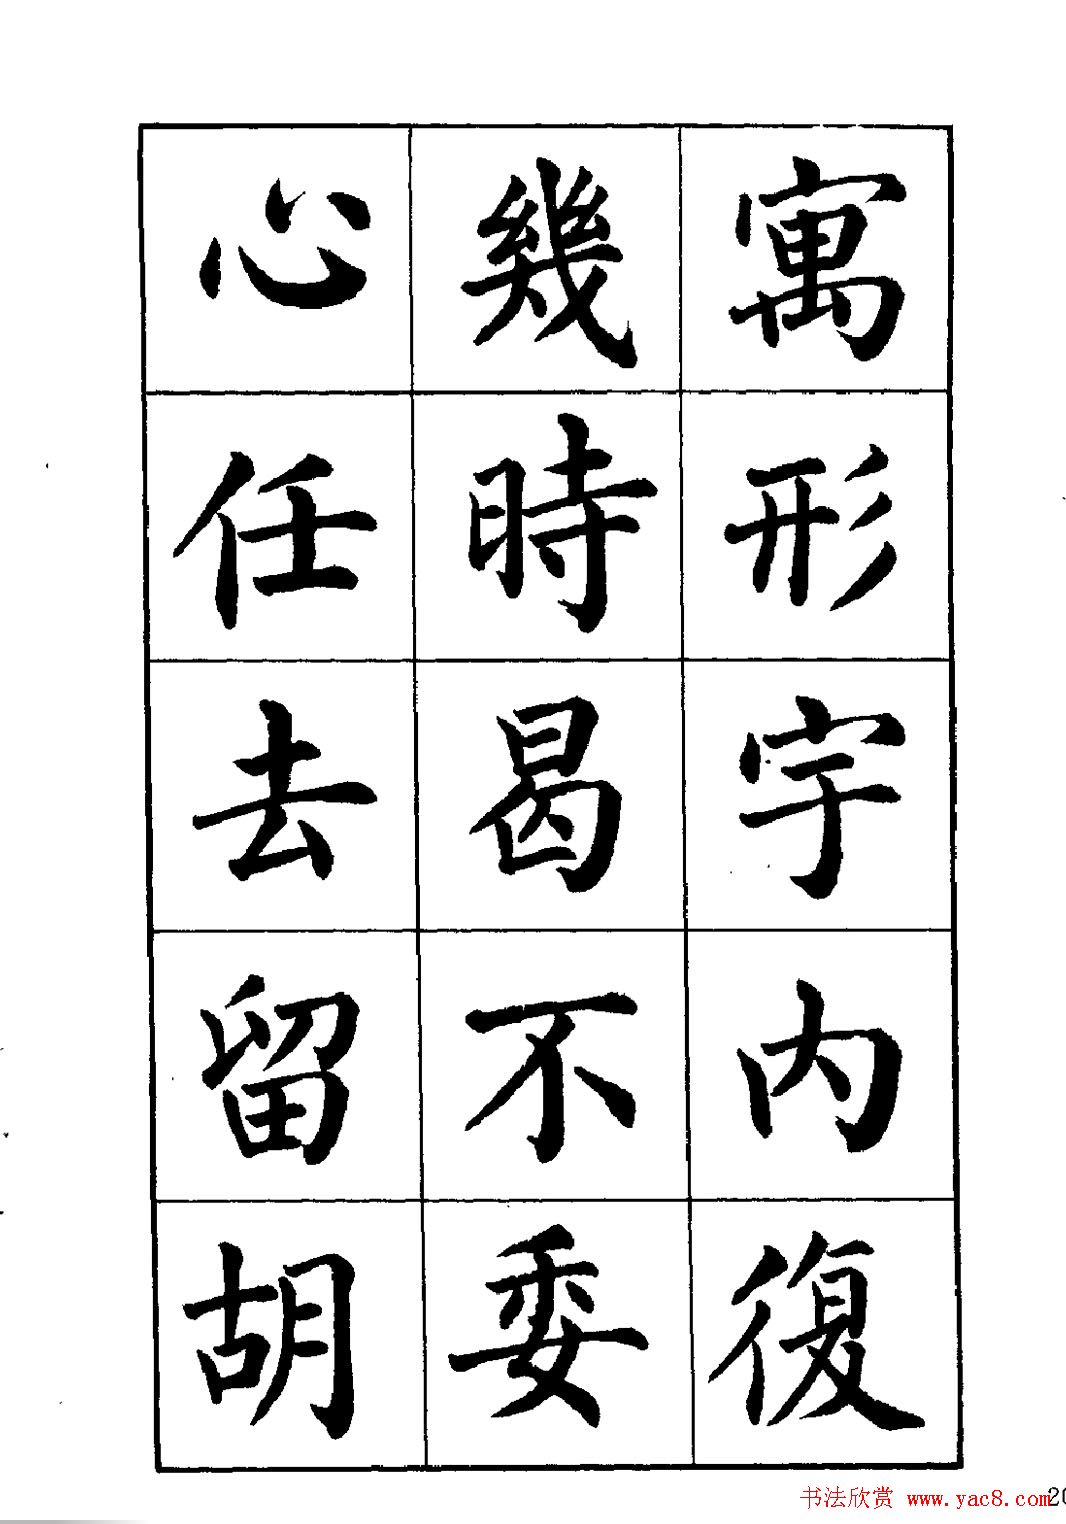 寓形字内復
幾時曷不委
心任去留胡
书法欣赏 www.yac8.com
20